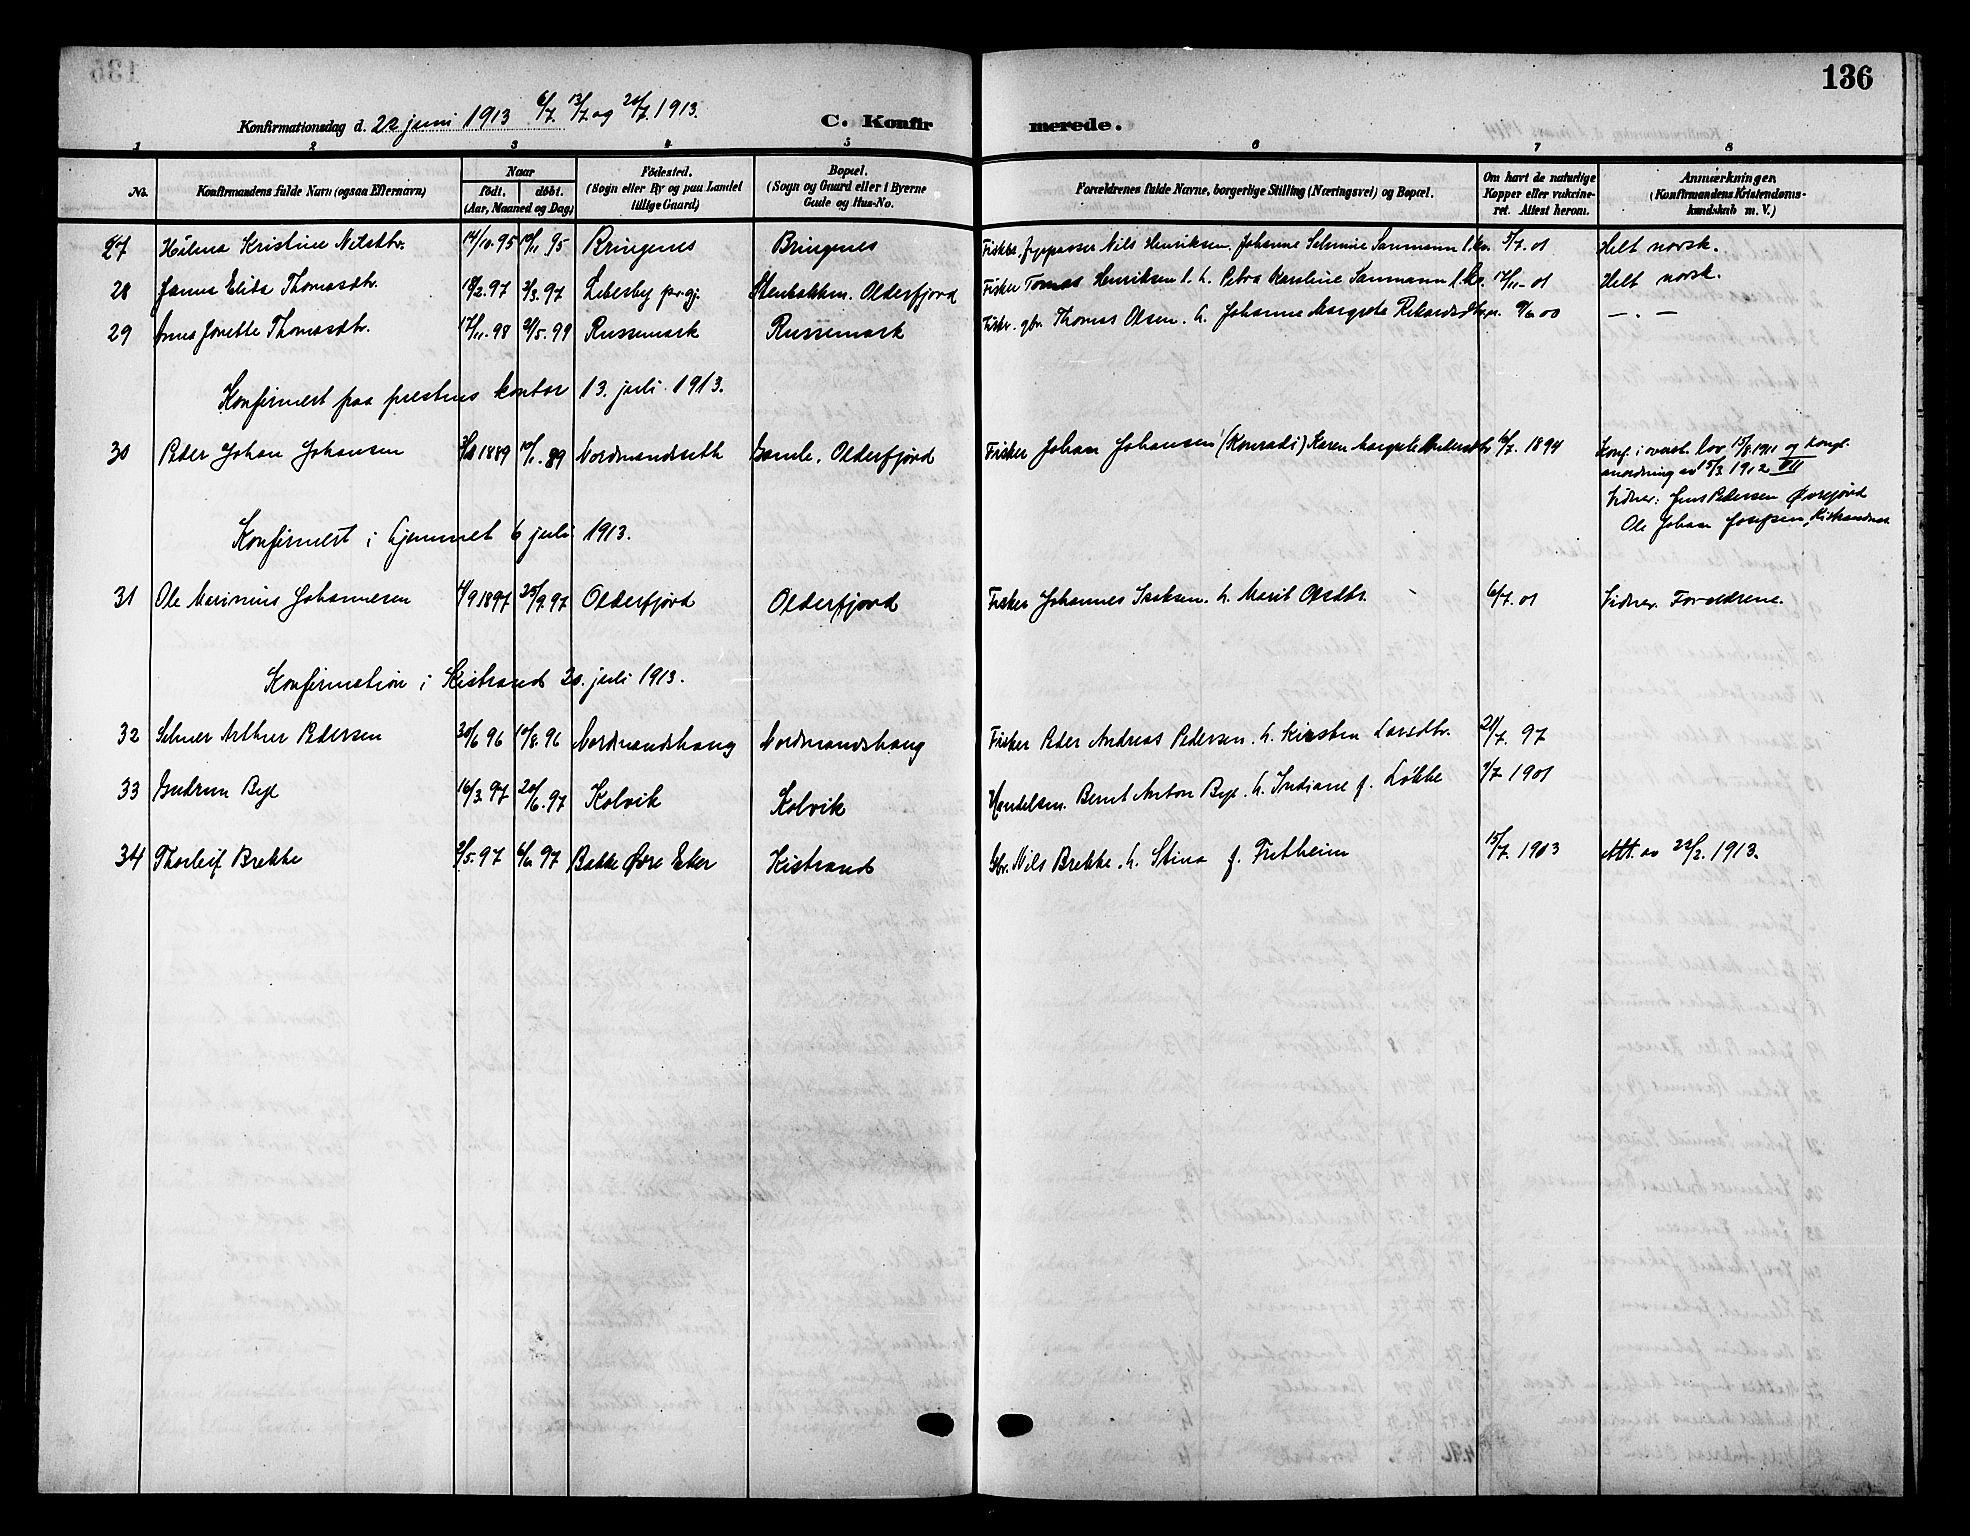 136
Konfirmationsdag d. 22 juni 1913 6/7. 13/7 og 20/7. 1913.
C. Konfirmerede.
1 2 3 4 5 6 7 8
No.
Konfirmandens fulde Navn (ogsaa Efternavn)
Naar
födt. döbt.
(Aar, Maaned og Dag)
Födested.
(Sogn eller By og paa Landet tillige Gaard)
Bopæl.
(Sogn og Gaard eller i Byerne Gade og Hus-No.
Forældrenes fulde Navne, borgerlige Stilling (Næringsvei) og Bopæl.
Om havt de naturlige Kopper eller vakcineret. Attest herom.
Anmærkninger
(Konfirmandens Kristendomskundskab m. V.)
27 Hålena Kristine Nilsdtr. 14/10.95 10/11 95 Bringenes Bringenes Nils Henriksen. Johanne Selmine Sanmann l.kv. 5/7. 01 Helt norsk.
28 Elida Thomasdtr. 2.97 3/3.97 Lebesby pr.gj. Stenbakken. Olderfjord Fisker Tomas Henriksen l. h. Petra Karoline Sanmann l.kv. 17/11-01 Helt norsk.
29 Anna Jonette Thomasdtr. 17/11.98 21/5.99 Russemark Russemark Fisker. gbr. Thomas Olsen. h. Johanne Margreta Rikardsdtr. 9/6 00 — . —
Konfirmert paa prestens kontor 13. juli 1913.
30 Peder Johan Johansen 1889 10/11.89 Nordmandseth Gamle. Olderfjord Fisker Johan Johansen (Konradi) Karen Margrete Andersdtr 16/7. 1894 Konf. i overst. lov 15/8 1911 og kongl.
anordning av 15/3 1912 VII
Vidner: Jens Pedersen Øvrefjord
Ole Johan Josefsen, Kistrandnes
Konfirmert i hjemmet 6 juli 1913.
31 Ole Marinius Johannesen 11/9 1897 25/9.97 Olderfjord Olderfjord Fisker Johannes Isaksen. h. Marit Olsdtr. 6/7. 01 Vidner. Forældrene.
Konfirmation i Kistrand 20. juli 1913.
32 Selmer Arthur Pedersen 30/6 96 10/8.96 Nordmandshaug Nordmandshaug Fisker Peder Andreas Pedersen. h. Kirsten Larsdtr. 21/7. 97
33 Gudrun Bye 16/3.97 20/6.97 Kolvik Kolvik Handelsm. Bernt Anton Bye. h. Indiane f. Løkke 7/7 1901
34 Thorleif Brekke 2/5.97 6/6 97 Bakke Øvre Eker Kistrand Gbr. Nils Brekke. h. Stina f. Fretheim 15/7. 1903 Att. av 22/2. 1913.